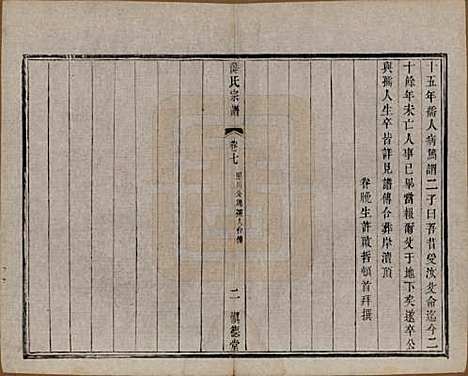 十五年孺人病篤謂二子曰吾昔受汝父命迄今二
十餘年未亡人事已畢當報爾父于地下矣遂卒公
與孺人生卒皆詳見譜傳合葬岸瀆頂
眷晚生許啟哲頓首拜撰
氏宗譜
卷七
二
德堂